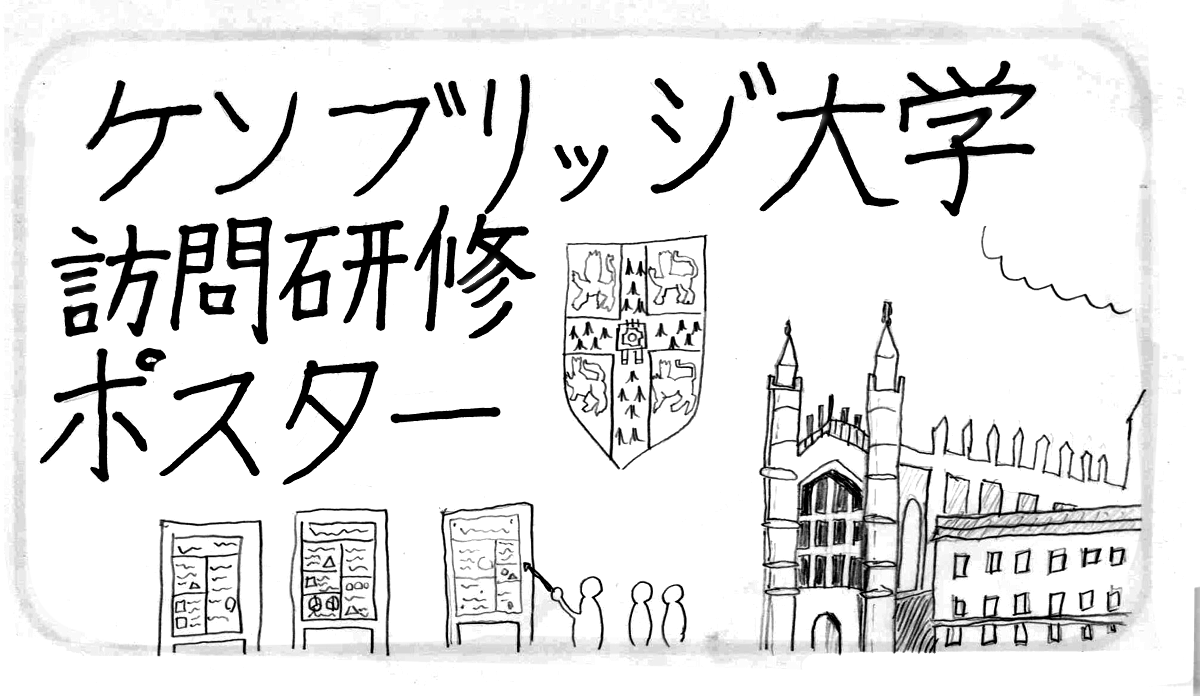 ケンブリッジ大学
訪問研修
ポスター